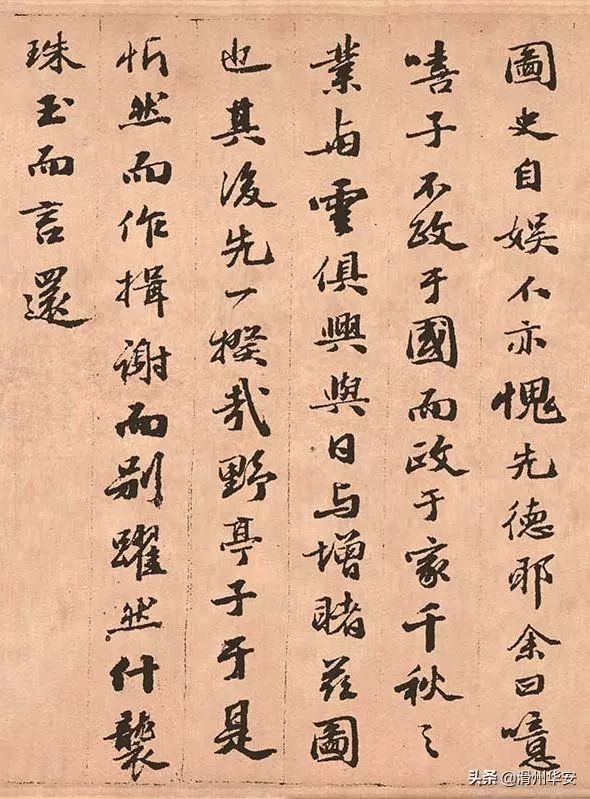 圖史自娱不亦愧先德耶余曰噫
嘻子不政于國而政于家千秋之
業與雲俱興與日与增睹兹圖
也其後先一揆哉野亭子于是
忻然而作揖謝而别躍然什襲
珠玉而言還
头条@滑州华安